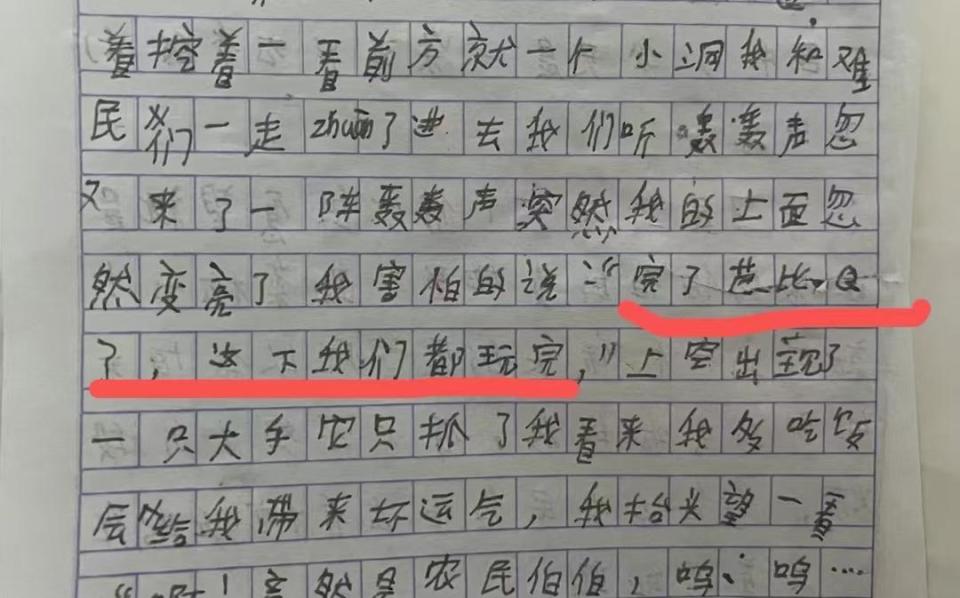 着挖着一看前方就一个小洞我和难
民们一走zhuan了进去我们听轰轰声忽
又来了一阵轰轰声突然我的上面忽
然变亮了我害怕的说:“完了芭比Q
了,这下我们都玩完,”上空出现了
一只大手它只抓了我看来我多吃饭
会给我带来坏运气,我抬头望一看
竟然是农民伯伯,呜、呜……